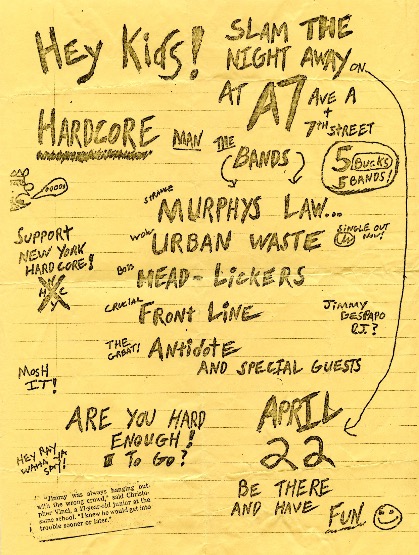 HEY KIDS!
SLAM THE
NIGHT AWAY ON
AT A7 AVE A
+
7TH STREET
HARDCORE MAN
THE
BANDS
5 BUCKS
5 BANDS!
STRANGE
MURPHYS LAW...
WOW
URBAN WASTE
SINGLE OUT
NOW!
SUPPORT
NEW YORK
HARDCORE!
N Y
H C
BOSS
HEAD-LICKERS
CRUCIAL
FRONT LINE
JIMMY
GESPAPO
D.J.?
THE
GREAT!
ANTIDOTE
AND SPECIAL GUESTS
MOSH
IT!
ARE YOU HARD
ENOUGH!
TO GO?
APRIL
22
HEY RAY,
BE THERE
AND HAVE
FUN
"Jimmy was always hanging out
with the wrong crowd," said Christo-
pher Vinci, a 17-year-old junior at the
same school. "I knew he would get into
trouble sooner or later."